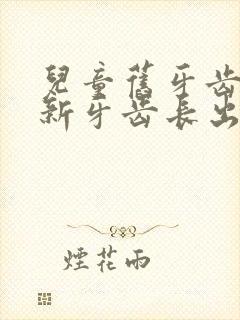 兒童舊牙齒
新牙齒長出
煙花雨